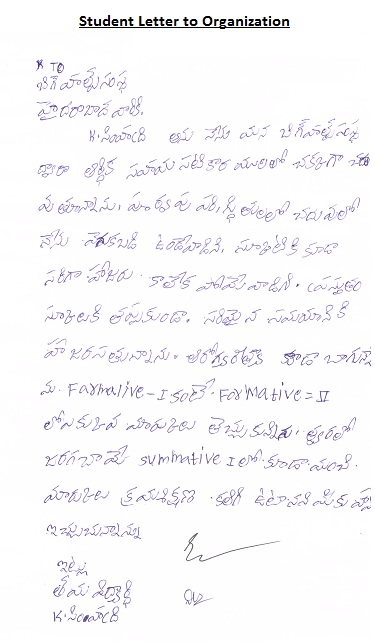 Student Letter to Organization
To
బిగ్ హెల్ప్ సంస్థ
హైదరాబాద్ వారికి,
K. సింహాద్రి అను నేను మన బిగ్ హెల్ప్ సంస్థ
ద్వారా ఆర్థిక సహాయ సహకార ములలో చక్కగా చదు
వు తూన్నాను, పూర్వపు పరిస్థితులలో చదువులో
నేను వెనుకబడి ఉండేవాడిని, స్కూలుకి కూడా
సరిగా హాజరు కాలేక పోయే వాడిని. ప్రస్తుతం
స్కూలుకి తప్పకుండా. సరియైన సమయానికి
హాజరవుతున్నాను. ఆరోగ్య రీత్యా కూడా బాగున్నా
ను. Farmative-I కంటే Formative = II
లో మార్కులు తెచ్చుకున్నాను. త్వరలో
జరగబోయే summative I లో కూడా మంచి
మార్కులు క్రమశిక్షణ కలిగి ఉంటానని మీకు
ఇచ్చుచున్నాను
ఇట్లు
తమ విద్యార్థి
K. సింహాద్రి